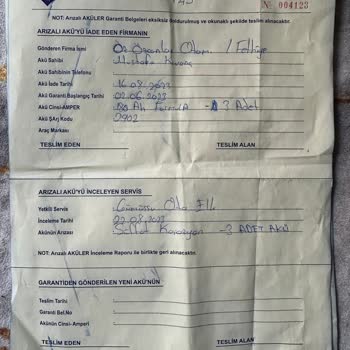 No 004123
NOT: Arızalı AKÜLER Garanti Belgeleri eksiksiz doldurulmuş ve okunaklı şekilde teslim alınacaktır.
ARIZALI AKÜ'YÜ İADE EDEN FİRMANIN
Gönderen Firma İsmi Öz Özcanlar Otom. / Fethiye
Akü Sahibi Mustafa
Akü Sahibinin Telefonu
Akü İade Tarihi 16.08.2023
Akü Garanti Başlangıç Tarihi 02.06.2023
Akü Cinsi-AMPER Ah Formül A 3 Adet
Akü Şarj Kodu 2902
Araç Markası
TESLİM EDEN TESLİM ALAN
ARIZALI AKÜ'YÜ İNCELEYEN SERVİS
Yetkili Servis Oto
İnceleme Tarihi 22.08.2023
Akünün Arızası 3 ADET AKÜ
NOT: Arızalı AKÜLER İnceleme Raporu ile birlikte geri alınacaktır.
GARANTİDEN GÖNDERİLEN YENİ AKÜ'NÜN
Teslim Tarihi
Garanti Bel.No
Akünün Cinsi-Amperi
TESLİM EDEN TESLİM ALAN